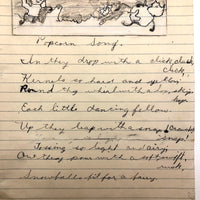 Popcorn Song.
In they drop with a click, clack, click,
Kernels so hard and yellow
Round the wheel with a
Each little dancing fellow.
Up they leap with a snap! snap!
Tossing so light and airy,
Out they pour with a soft
Snowballs fit for a fairy.